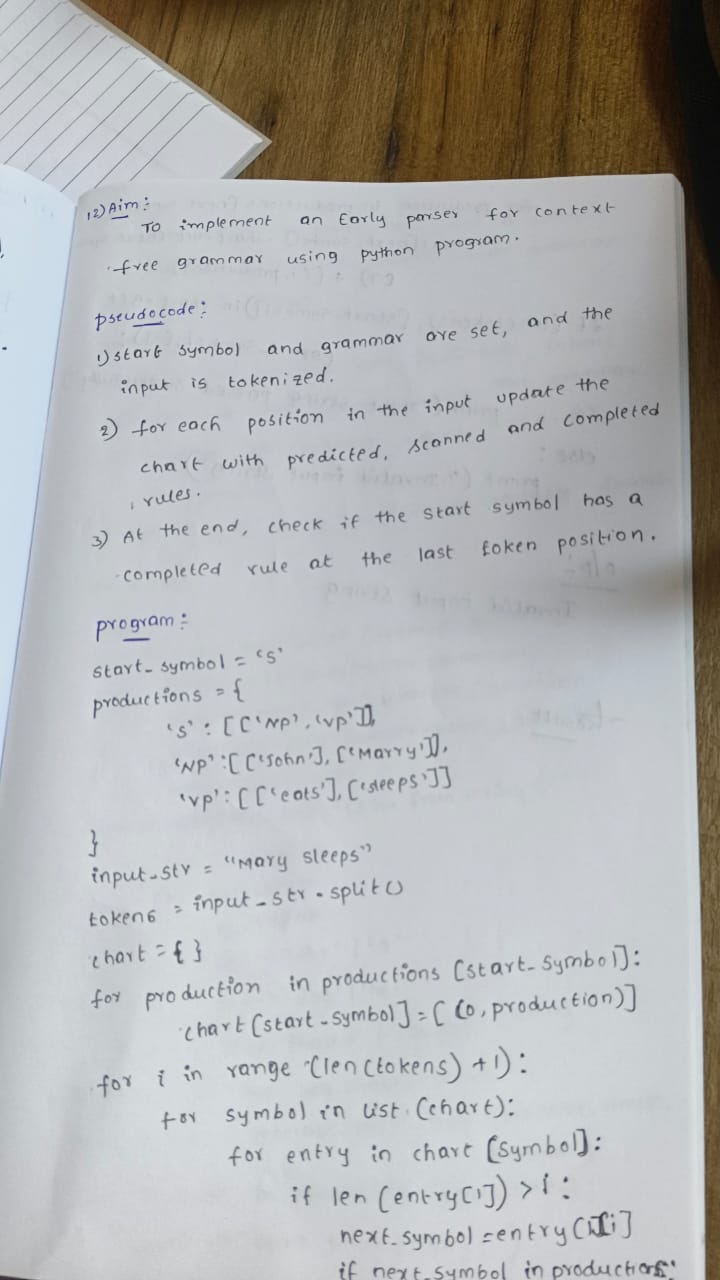 12) Aim:
To implement an Early parser for context
free grammar using python program.
pseudocode:
1) start symbol and grammar are set, and the
input is tokenized.
2) for each position in the input update the
chart with predicted, scanned and completed
rules.
3) At the end, check if the start symbol has a
completed rule at the last token position.
program:
start_symbol = 's'
productions = {
's' : [['NP', 'VP']],
'NP' : [['John'], ['Marry']],
'VP' : [['eats'], ['sleeps']]
}
input_str = "Mary sleeps"
tokens = input_str.split()
chart = { }
for production in productions [start_symbol]:
chart [start_symbol] = [ (0, production)]
for i in range (len (tokens) +1):
for symbol in list (chart):
for entry in chart [symbol]:
if len (entry[1]) > i :
next_symbol = entry [1][i]
if next_symbol in productions: